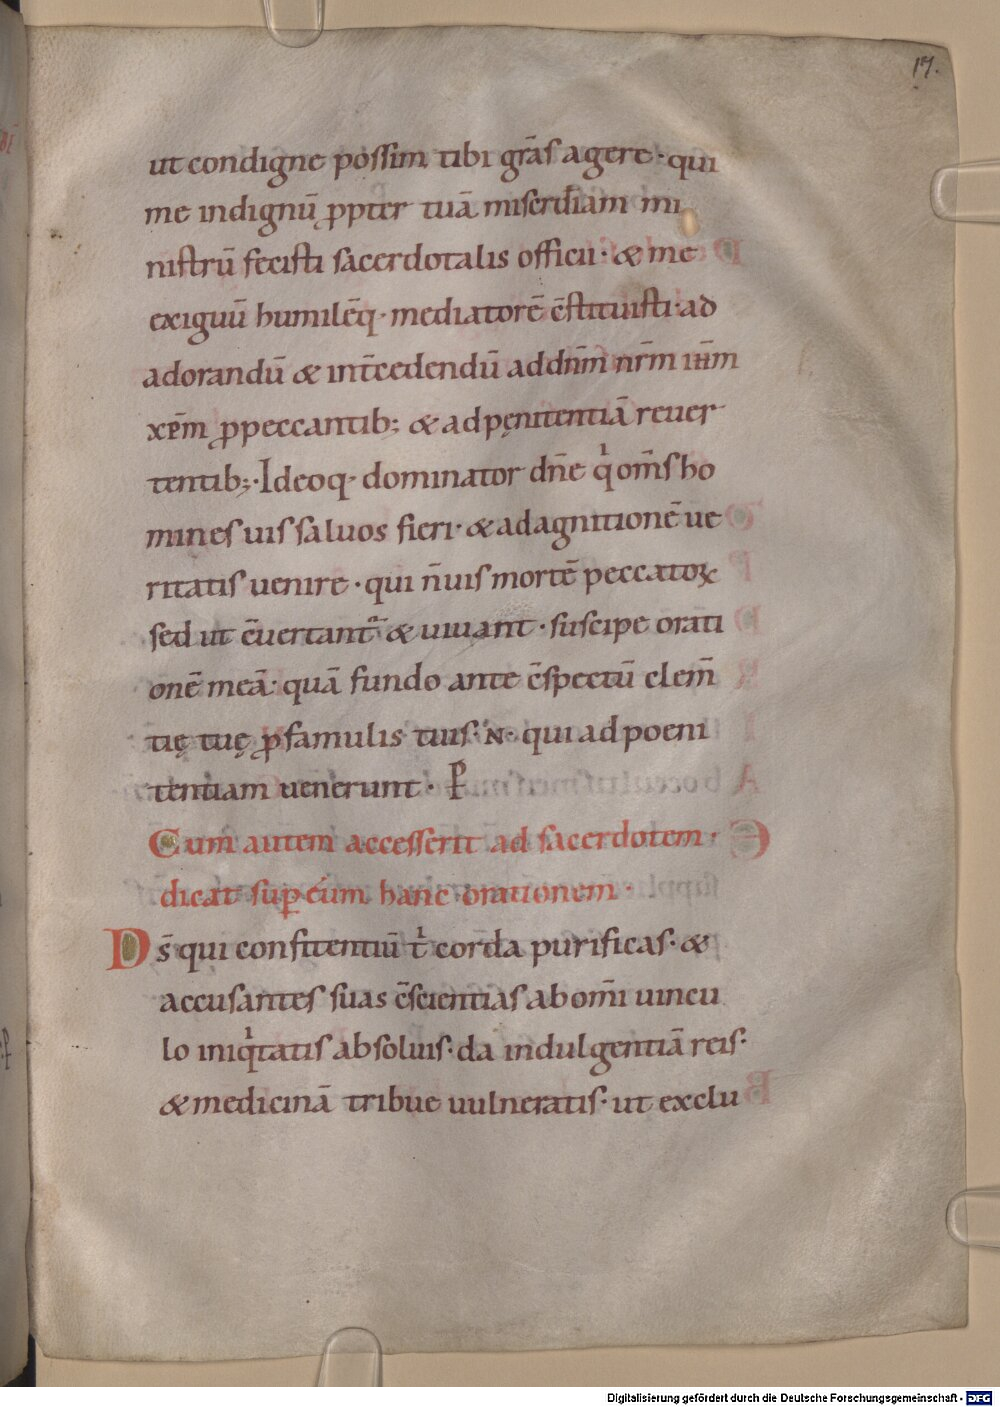 17.
ut condigne possim tibi gr̄as agere · qui
me indignū ꝓpter tuā miserd̄iam mi
nistrū fecisti sacerdotalis officii · & me
exiguū humilēq· mediatorē c̄stituisti · ad
adorandū & int̄cedendū ad dn̄m nr̄m ih̄m
xp̄m ꝓ peccantib; & ad pęnitentiā reuer
tentib; · Ideoq· dominator dn̄e qͥ om̄s ho
mines uis saluos fieri · & ad agnitionē ue
ritatis uenire · qui n̄ uis mortē peccatoꝝ
sed ut c̄uertant᷑ & uiuant · suscipe orati
onē meā · quā fundo ante c̄spectū clem̄
tię tuę ꝓ famulis tuis · N · qui ad poeni
tentiam uenerunt · P̱
Cum autem accesserit ad sacerdotem ·
dicat suꝑ eum hanc orationem ·
Ds̄ qui confitentiū tͥ corda purificas · &
accusantes suas c̄scientias ab om̄i uincu
lo iniqͥtatis absoluis · da indulgentiā reis ·
& medicinā tribue uulneratis · ut exclu
Digitalisierung gefördert durch die Deutsche Forschungsgemeinschaft - DFG